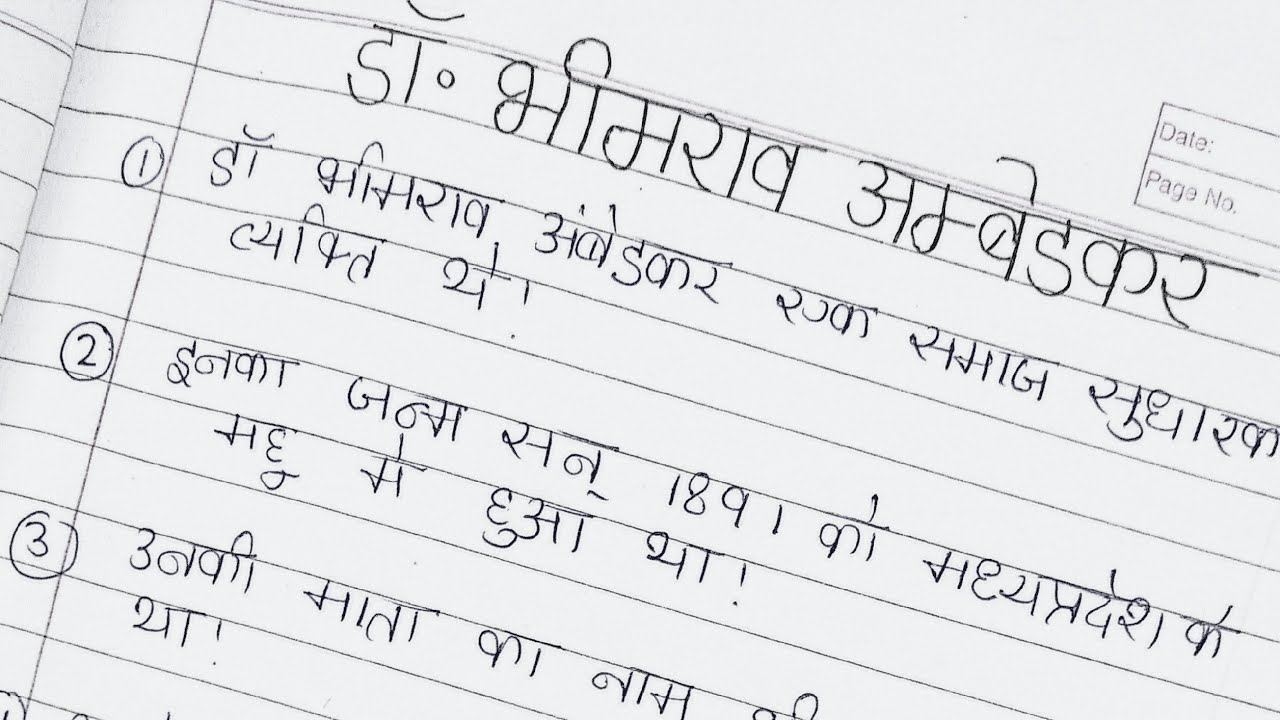 डॉ. भीमराव अम्बेडकर
Date:
Page No.
① डॉ भीमराव अंबेडकर एक समाज सुधारक
व्यक्ति थे।
② इनका जन्म सन् 1891 को मध्यप्रदेश के
महू मे हुआ था।
③ उनकी माता का नाम
था।